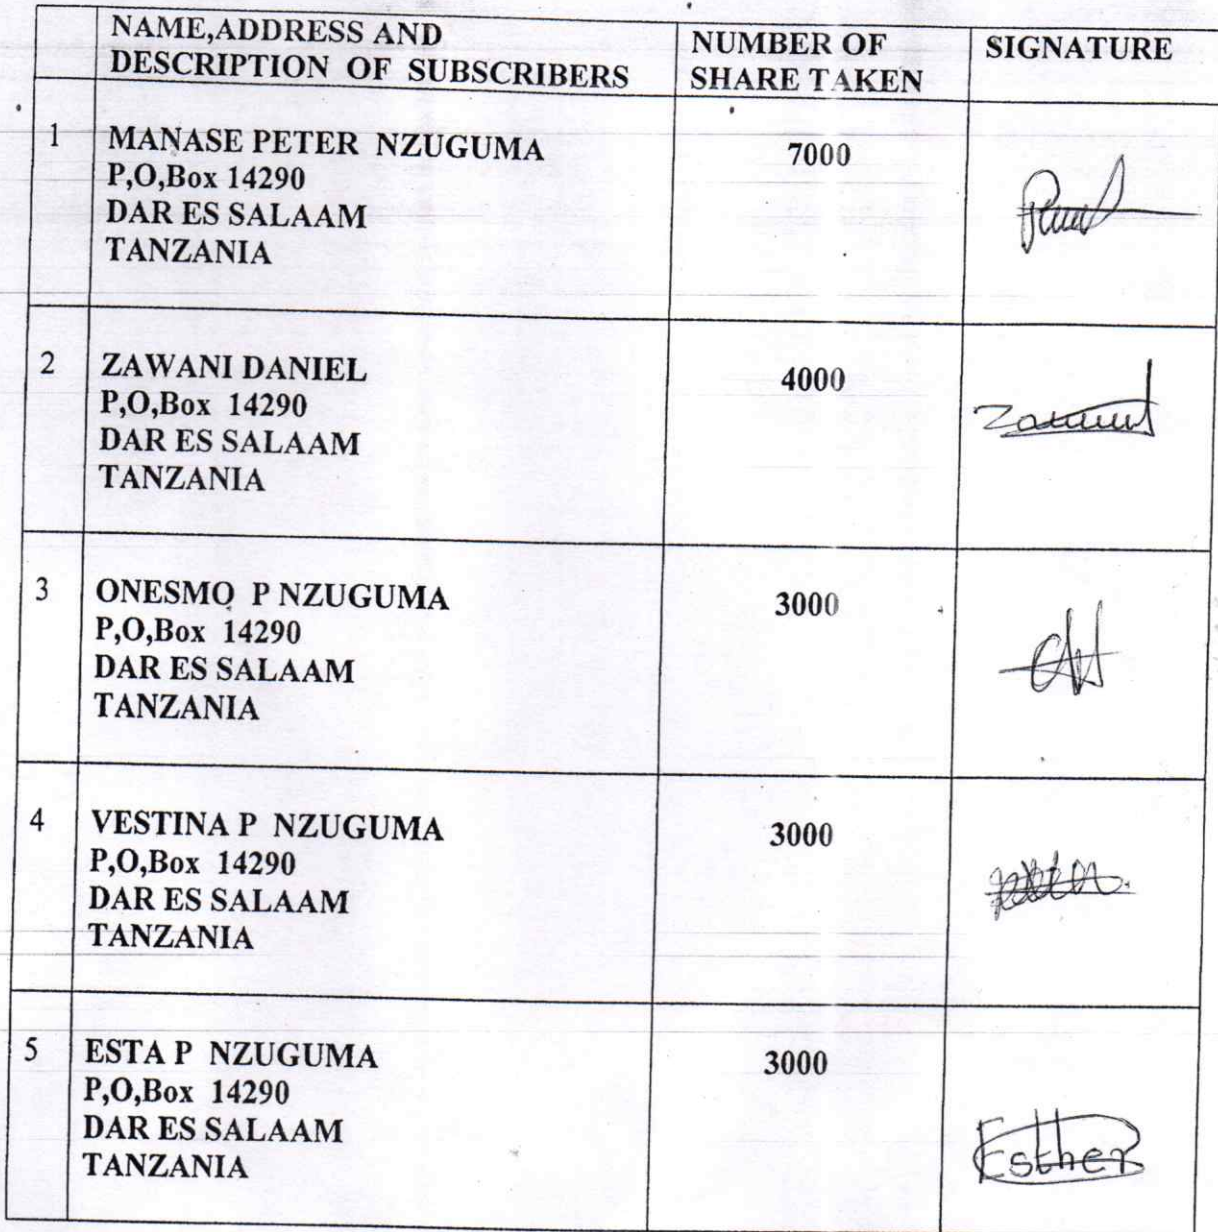 NAME,ADDRESS AND
DESCRIPTION OF SUBSCRIBERS
NUMBER OF
SHARE TAKEN
SIGNATURE
1
MANASE PETER NZUGUMA
7000
P,O,Box 14290
DAR ES SALAAM
TANZANIA
2
ZAWANI DANIEL
4000
P,O,Box 14290
DAR ES SALAAM
TANZANIA
3
ONESMO P NZUGUMA
3000
P,O,Box 14290
DAR ES SALAAM
TANZANIA
4
VESTINA P NZUGUMA
3000
P,O,Box 14290
DAR ES SALAAM
TANZANIA
5
ESTA P NZUGUMA
3000
P,O,Box 14290
DAR ES SALAAM
TANZANIA
Esther